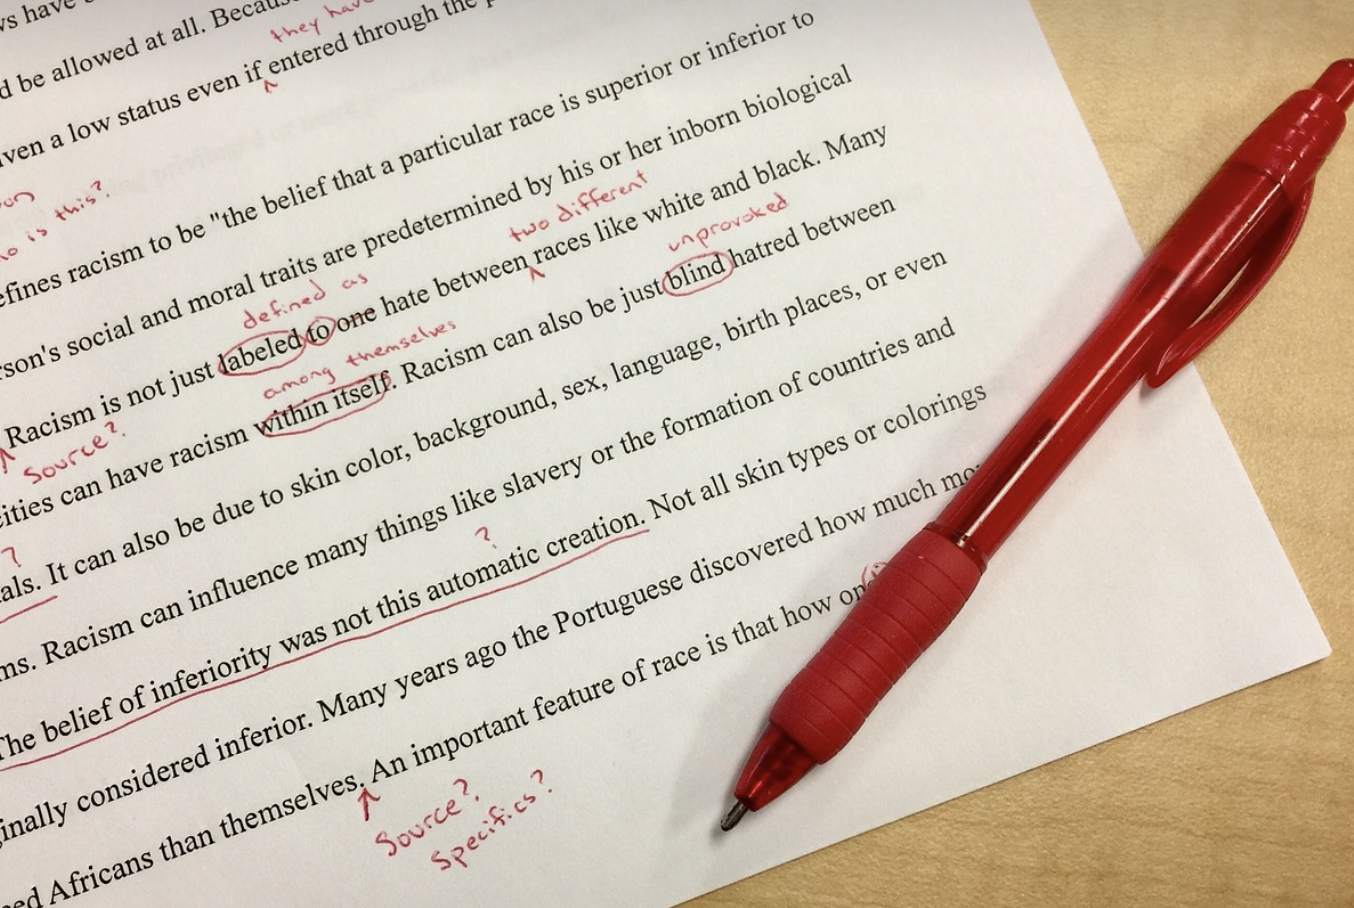 ws have
they have
d be allowed at all. Because
iven a low status even if entered through the
on
o is this?
efines racism to be "the belief that a particular race is superior or inferior to
rson's social and moral traits are predetermined by his or her inborn biological
two different
defined as
Racism is not just labeled to one hate between races like white and black. Many
unprovoked
among themselves
Source?
cities can have racism within itself. Racism can also be just blind hatred between
?
als. It can also be due to skin color, background, sex, language, birth places, or even
ms. Racism can influence many things like slavery or the formation of countries and
?
The belief of inferiority was not this automatic creation. Not all skin types or colorings
ginally considered inferior. Many years ago the Portuguese discovered how much mo
ed Africans than themselves. An important feature of race is that how on
Source?
Specifics?